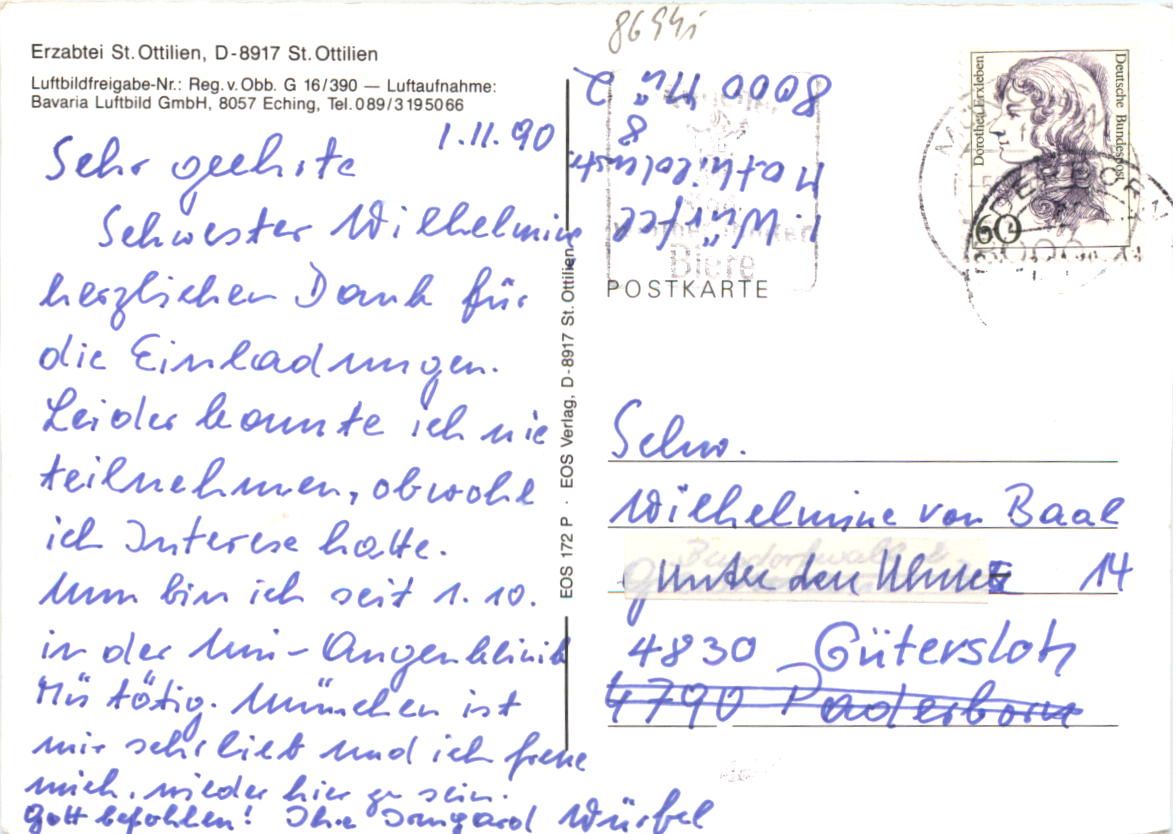 Erzabtei St. Ottilien, D-8917 St. Ottilien
Luftbildfreigabe-Nr.: Reg. v. Obb. G 16/390 — Luftaufnahme:
Bavaria Luftbild GmbH, 8057 Eching, Tel. 089/3195066
1.11.90
Sehr geehrte
Schwester Wilhelmine
herzlichen Dank für
die Einladungen.
Leider konnte ich nie
teilnehmen, obwohl
ich Interese hatte.
Nun bin ich seit 1.10.
in der Uni-Augenklinik
Mü tätig. München ist
mir sehr lieb und ich freue
mich, wieder hier zu sein.
Gott befohlen! Ihre Irmgard Würfel
EOS 172 P · EOS Verlag, D-8917 St. Ottilien
8694i
I. Würfel
Mathildenstr.
8
8000 Mü 2
Biere
POSTKARTE
Dorothea Erxleben
Deutsche Bundespost
60
Schw.
Wilhelmine von Baal
unter den Ulmen 14
4830 Gütersloh
4790 Paderborn